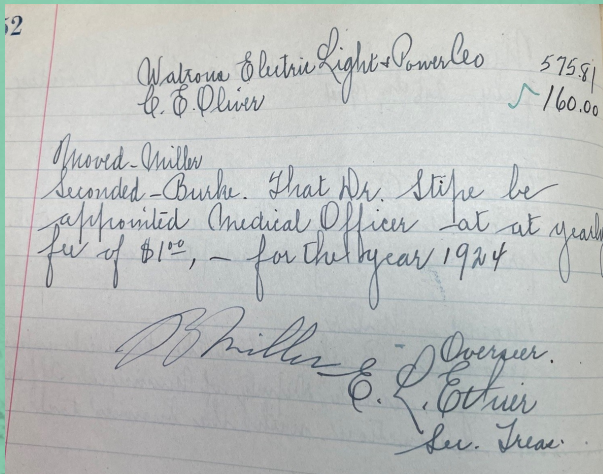 52
Watrous Electric Light & Power Co 575.81
C. E. Oliver √ 160.00
Moved - Miller
Seconded - Burke. That Dr. Stipe be
appointed Medical Officer - at at yearly
fee of $1.00, - for the year 1924
J B Miller - Overseer.
E. L. Ethier
Sec. Treas.